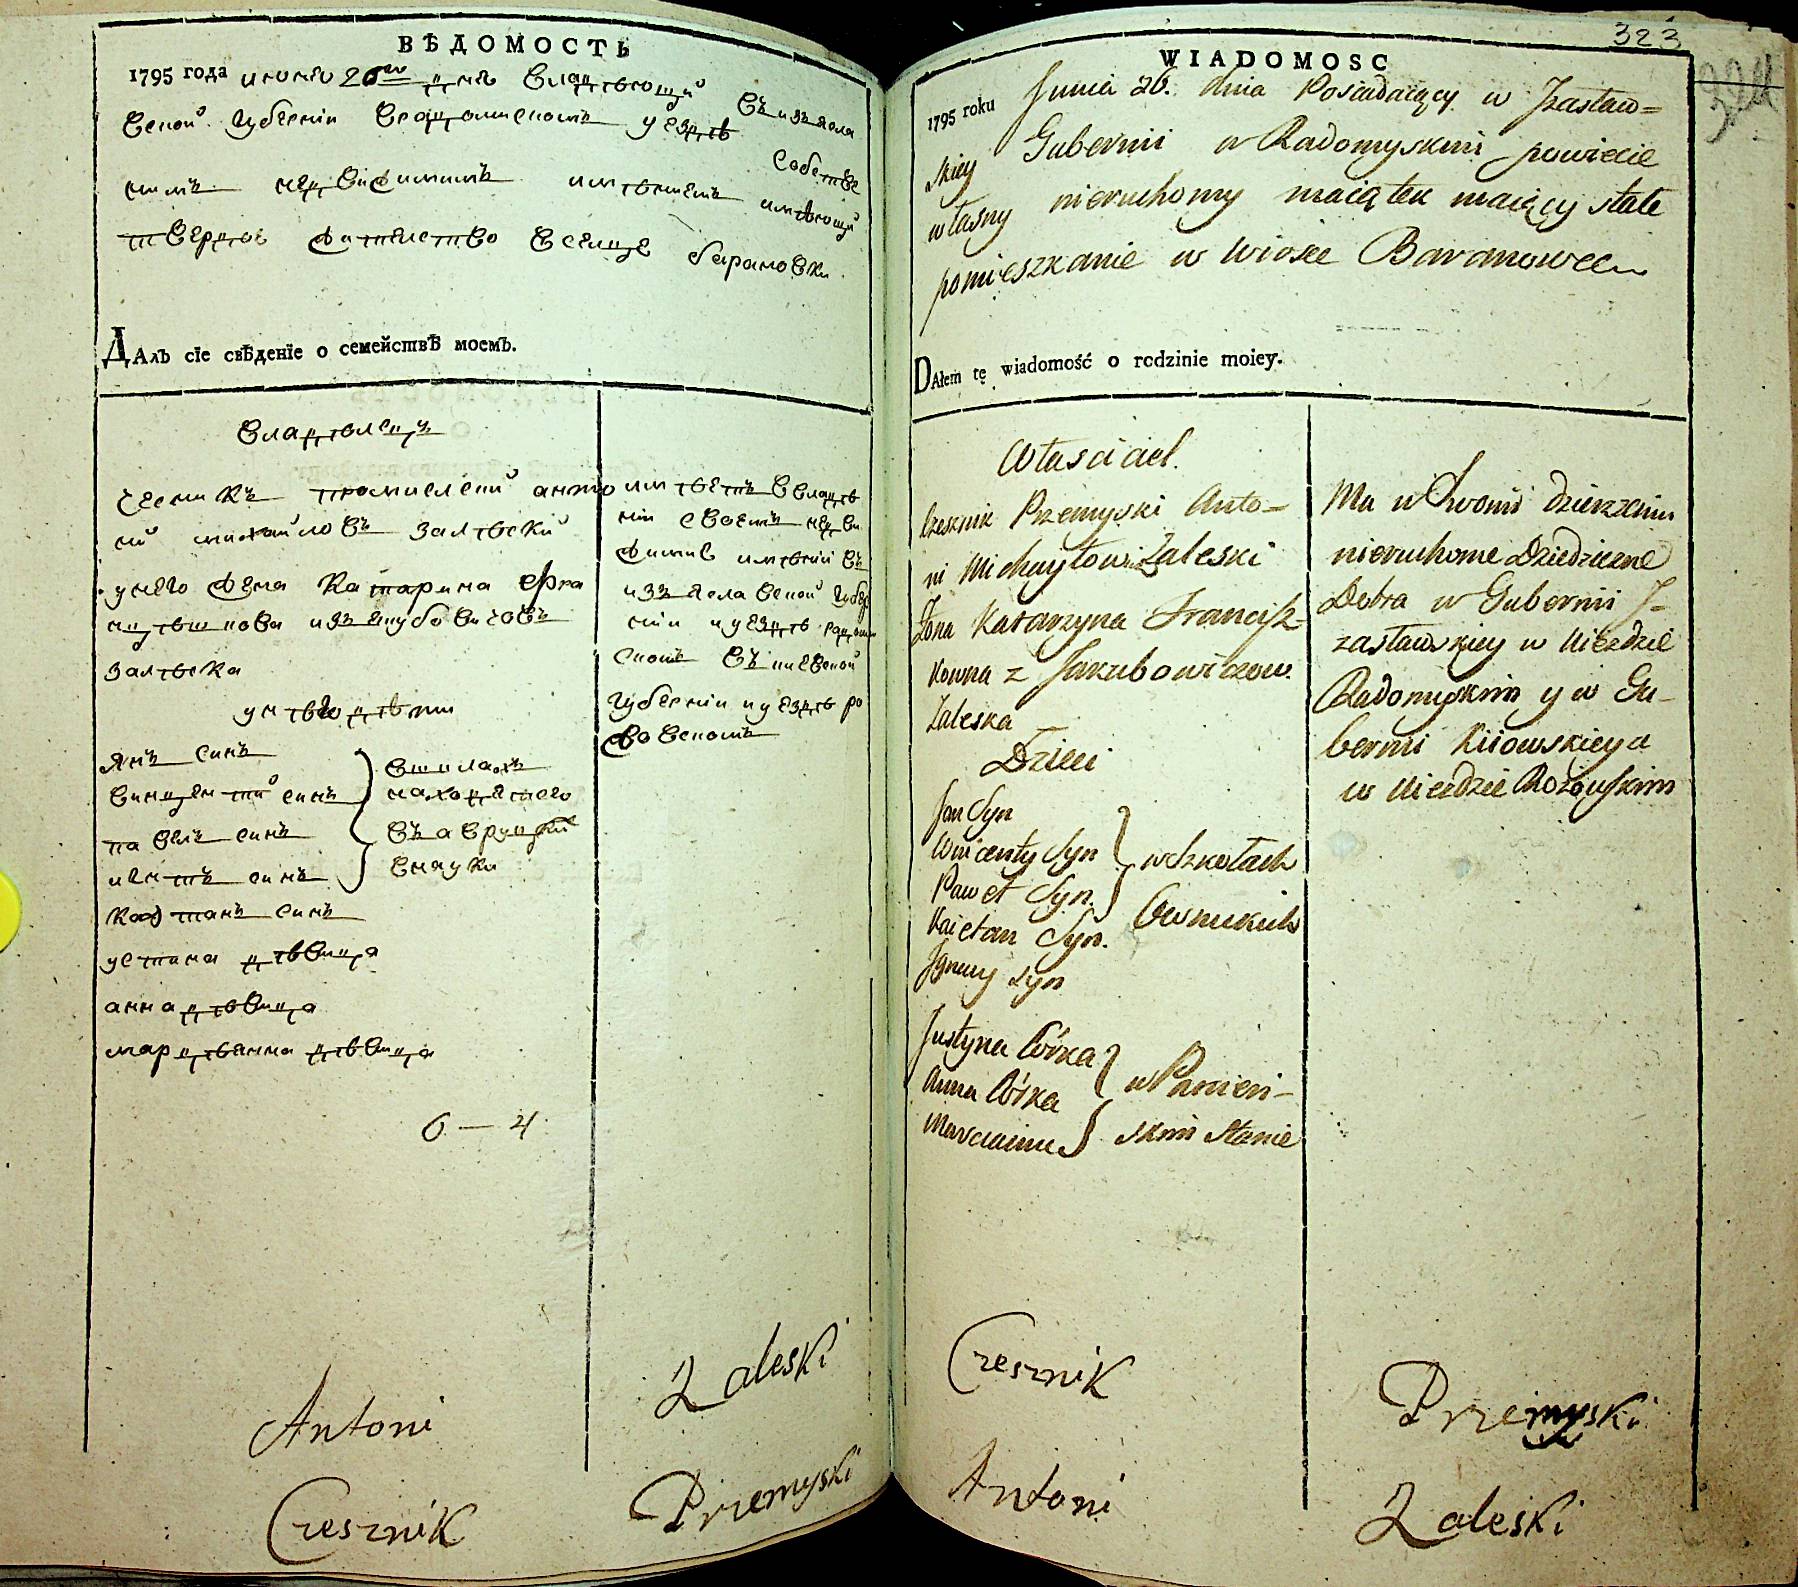 ВѢДОМОСТЬ
1795 года июня 26го дня владѣющий
въ изъясла
вской губернiи врадомыскомъ уездѣ
собстве
нимъ недвижимимъ имѣнiемъ имѣющй
твердое жителство вселце барановки
ДАлъ сїе свѣденїе о семействѣ моемъ.
владѣлецъ
чесникъ премислский анто
нй михайловъ залѣский
унего жена катарина фра
нцѣшкова изъякубовичовъ
залѣска
унѣво дѣти
янъ синъ
винценти синъ
павелъ синъ
игнатъ синъ
вшколахъ
находятсе
въ овруцкй
внауки
каэтанъ синъ
устина дѣвица
анна дѣвица
марцѣянна дѣвица
6 — 4
имѣетъ ввладѣ
нiи своемъ недви
жимие имѣнiи въ
изъяславской губер
нiи иуездѣ радом
скомъ въ киевской
губернiи иуездѣ
Antoni
Zaleski
Czesznik
Przemyski
323
WIADOMOSC
1795 roku Junia 26. dnia Posiadaiący w Jzasław=
skiey Gubernii w Radomyskim powiecie
własny nieruchomy maiątek maiący stałe
pomieszkanie w Wiosce Baranowce
DAłem tę wiadomość o rodzinie moiey.
Własciciel.
Czesznik Przemyski Anto=
ni Michayłow Zaleski
Żona Katarzyna Francisz=
kowna z Jakubowiczow.
Zaleska
Dzieci
Jan Syn
Wincenty Syn
Paweł Syn.
Kaietan Syn.
Jgnacy Syn
w Szkołach
Owruckich
Justyna Córka
Anna Córka
Marcianna
w Panień=
skim stanie
Ma w Swoim dzierżeniu
nieruchome Dziedziczne
Dobra w Gubernii J=
zasławskiey w Uiezdzie
Radomyskim y w Gu=
bernii Kiiowskiey a
w Uiezdzie
Czesznik
Przemyski
Antoni
Zaleski